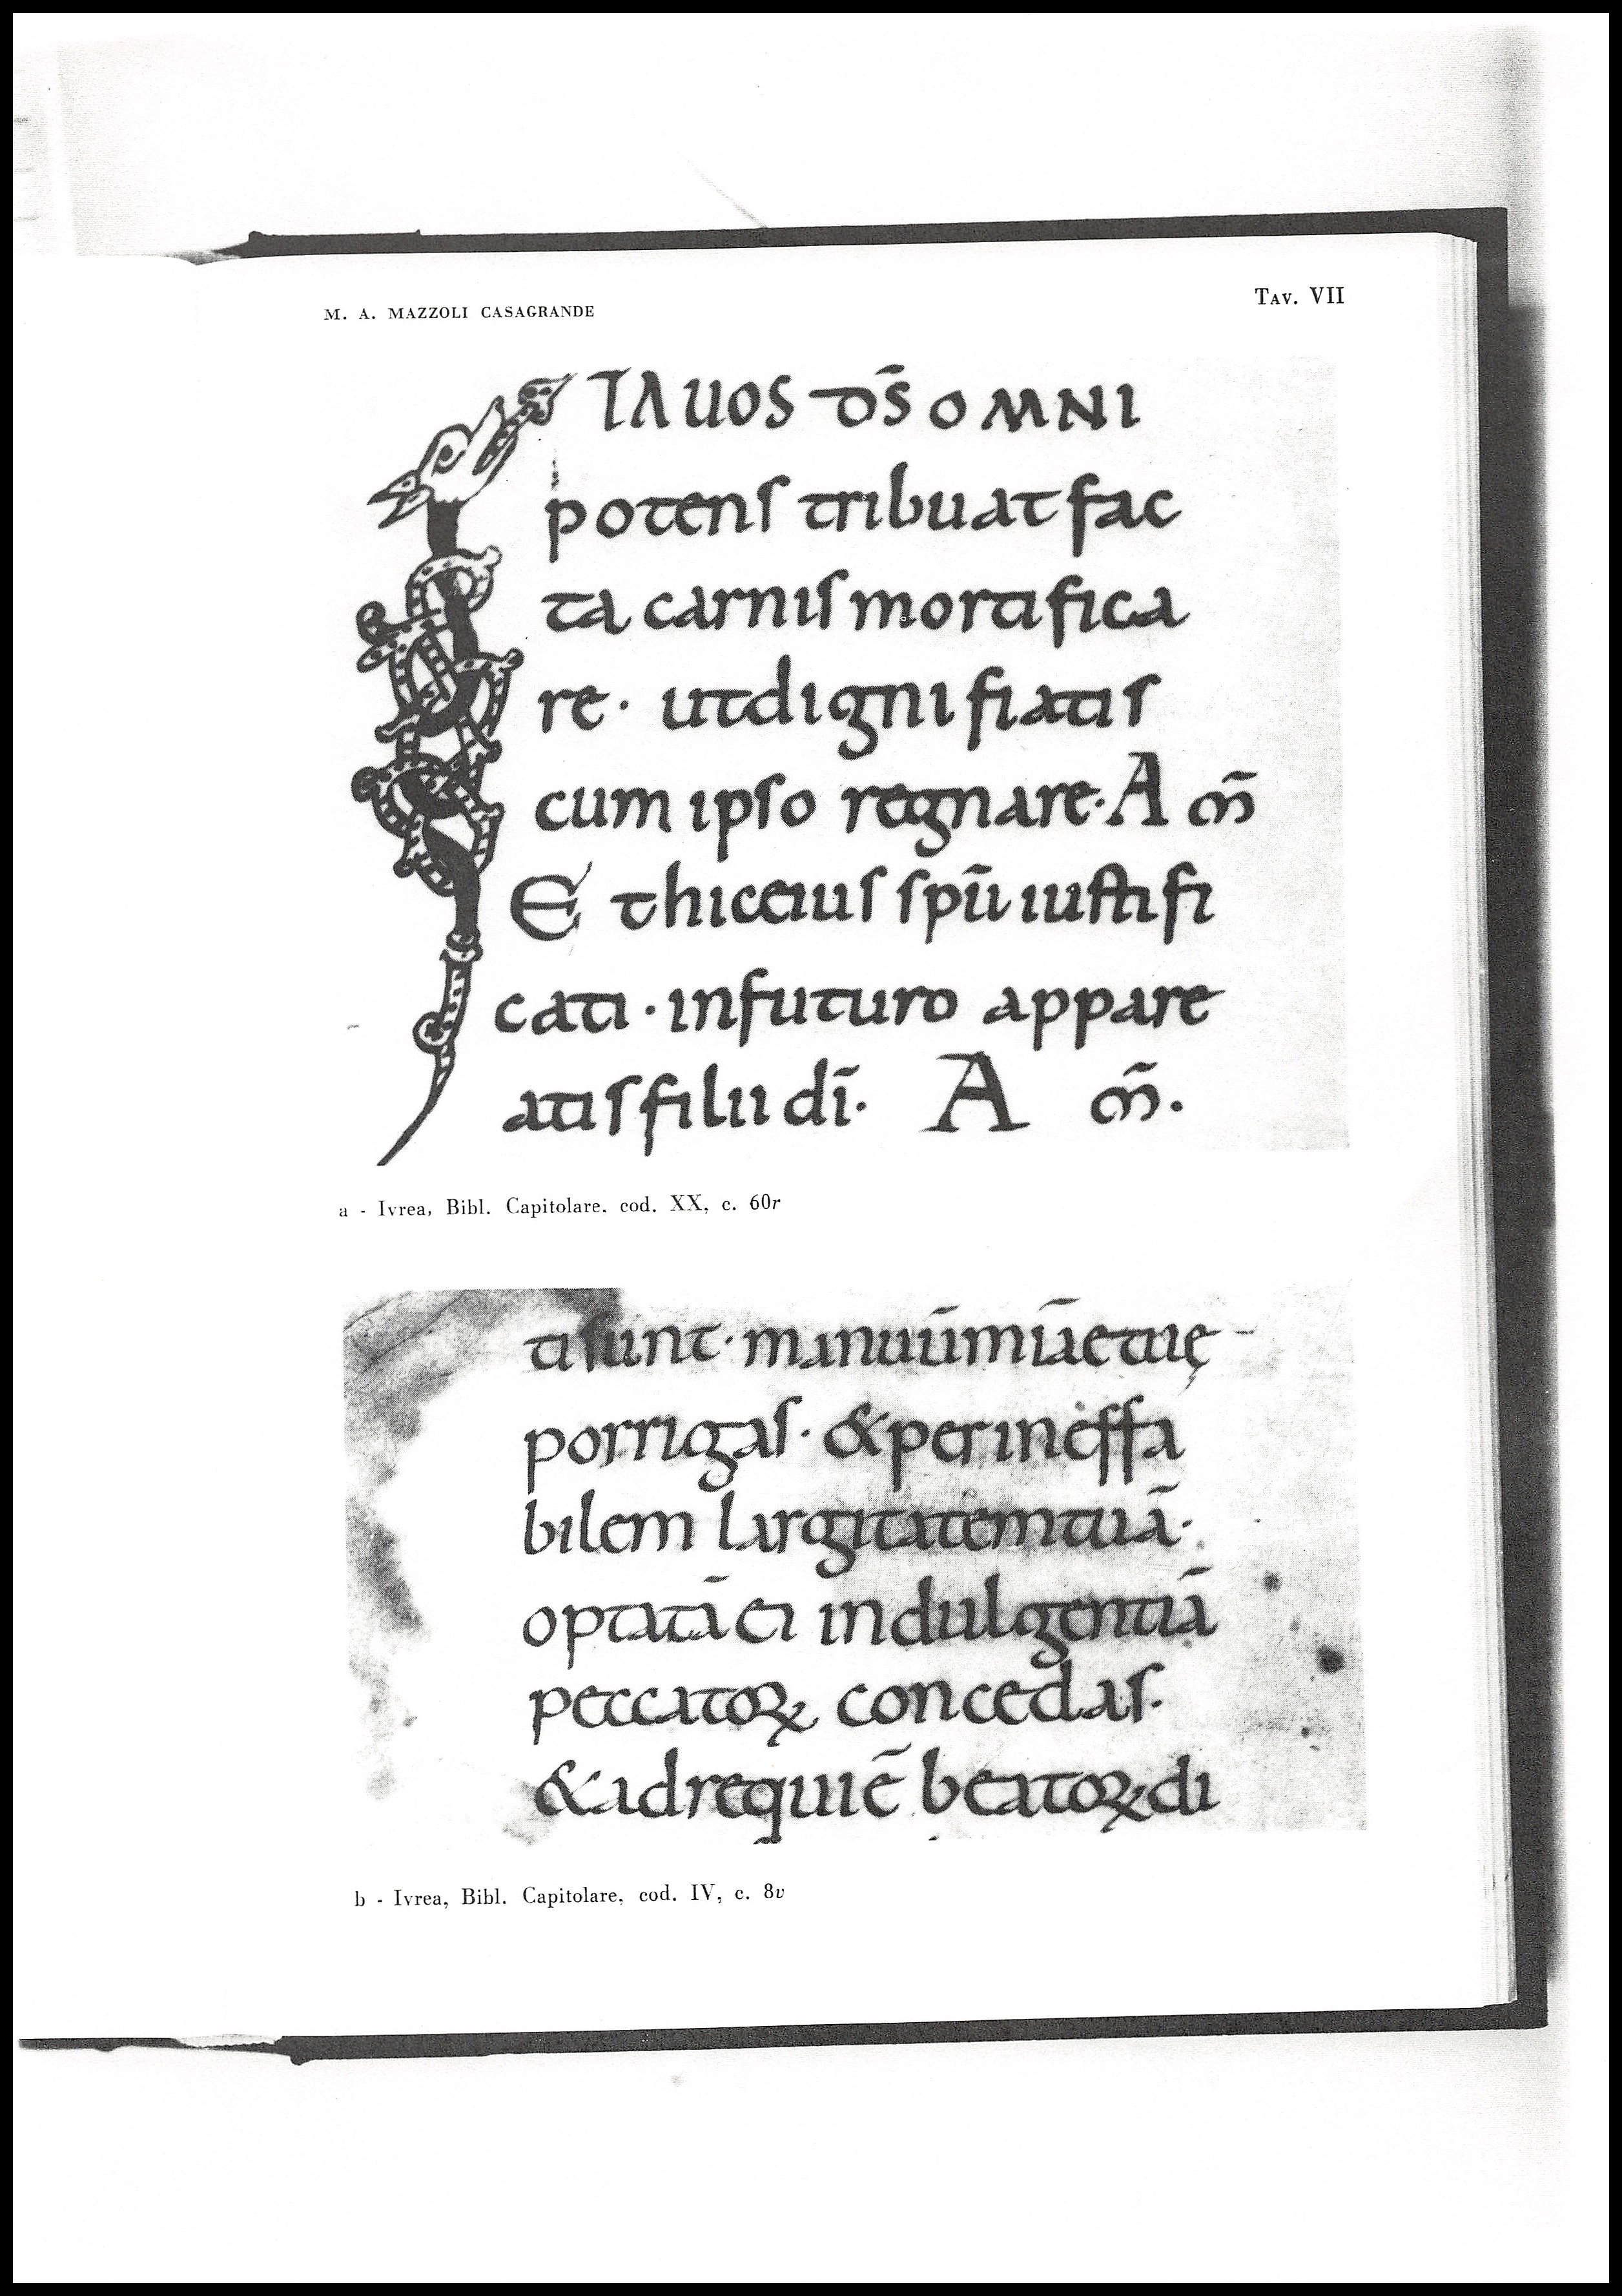 M. A. MAZZOLI CASAGRANDE
TAV. VII
ITA UOS DS̄ OMNI
potens tribuat fac
ta carnis mortifica
re · ut digni fiatis
cum ipso regnare · A m̄
Et hic eius sp̄u iustifi
cati · in futuro appare
atis filii dī · A m̄ ·
a - Ivrea, Bibl. Capitolare, cod. XX, c. 60r
ti sunt · manuū mīae tuę
porrigas · & per ineffa
bilem largitatem tuā ·
optatā ei indulgentiā
peccatoꝝ concedas ·
& ad requiē beatoꝝ di
b - Ivrea, Bibl. Capitolare, cod. IV, c. 8v